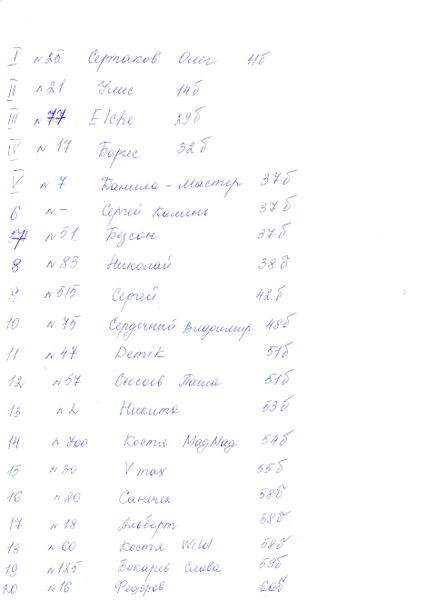 I №25 Сертаков Олег 11б
II №21 Улис 14б
III №77 Elche 29б
IV №17 Борис 32б
V №7 Банила-Мастер 37б
6 №- Сергей Каминь 37б
7 №51 Бизон 37б
8 №83 Николай 38б
9 №515 Сергей 42б
10 №75 Сердечный Владимир 48б
11 №47 Demik 51б
12 №57 Сысоев Паша 51б
13 №2 Никита 53б
14 №700 Костя MadMad 54б
15 №30 Vmax 55б
16 №80 Санечек 58б
17 №18 Альберт 58б
18 №60 Костя Wild 58б
19 №125 Бокарев Слава 59б
20 №16 Федоров 60б